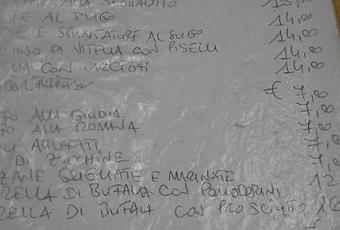 ALLA SCOTTADITO
TE AL SUGO 14,00
E SPUNTATURE AL SUGO 14,00
INO DI VITELLA CON PISELLI 14,00
CON 14,00
€ 7,00
ALLA GIUDIA 7,00
TO ALLA ROMANA 7,00
7,00
DI ZUCCHINE 7,00
ZANE GRIGLIATE E MARINATE 12
RELLA DI BUFALA CON POMODORINI
RELLA DI BUFALA CON PROSCIUTTO 16